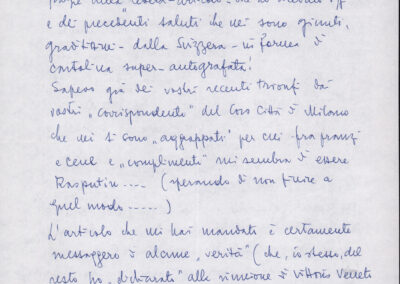 della lettera-articolo - che ho ricevuto oggi
e dei precedenti saluti che mi sono giunti,
graditissimi - dalla Svizzera - in forma di
cartolina super-autografata!
Sapevo già dei vostri recenti trionfi dai
vostri "corrispondenti" del Coro Città di Milano
che mi si sono "aggrappati" per cui - fra pranzi
e cene e "complimenti" mi sembra di essere
Rasputin .... (sperando di non finire a
quel modo .....)
L'articolo che mi hai mandato è certamente
messaggero di alcune "verità" (che, io stesso, del
resto ho "dichiarato" alla riunione di Vittorio Veneto